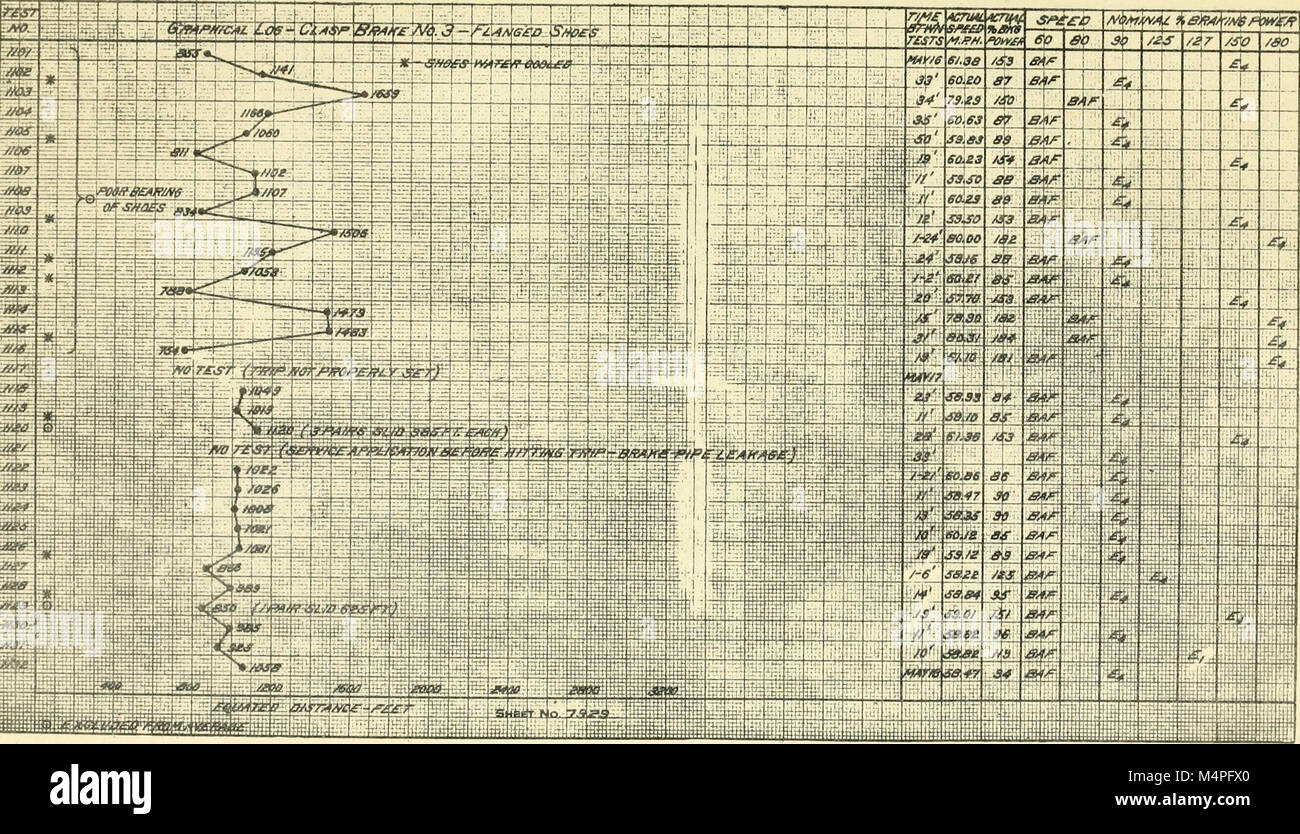 TEST NO. GRAPHICAL LOG - CLASP BRAKE NO. 3 - FLANGED SHOES TIME BTWN TESTS ACTUAL SPEED M.P.H. ACTUAL % BKG POWER SPEED NOMINAL % BRAKING POWER
60 80 90 125 127 150 180
1101 MAY 16 61.38 153 BAF E4
* - SHOES WATER COOLED
1102 * 1141 33' 60.20 87 BAF E4
1103 1659 34' 79.29 150 BAF E4
1104 1166 35' 60.63 87 BAF E4
1105 * 1060 50' 59.83 89 BAF E4
1106 811 19' 60.23 154 BAF E4
1107 1102 11' 59.50 88 BAF E4
1108 POOR BEARING 1107 11' 60.29 89 BAF E4
1109 * OF SHOES 834 12' 59.50 153 BAF E4
1110 1506 1-24' 80.00 182 BAF E4
1111 * 24' 58.16 88 BAF E4
1112 * 1058 1-2' 60.21 85 BAF E4
1113 788 20' 57.70 153 BAF E4
1114 1473 15' 182 BAF E4
1115 * 1483 31' 80.31 184 BAF E4
1116 764 19' 61.10 181 BAF E4
1117 NO TEST (TRIP NOT PROPERLY SET) MAY 17
1118 1049 23' 58.93 84 BAF E4
1119 * 1019 11' 59.10 85 BAF E4
1120 1120 (3 PAIRS SLID 385 FT. EACH) 28' 61.36 153 BAF E4
1121 NO TEST (SERVICE APPLICATION BEFORE HITTING TRIP - BRAKE PIPE LEAKAGE) BAF E4
1122 1022 1-21' 60.86 86 BAF E4
1123 1026 11' 58.47 90 BAF E4
1124 1008 19' 58.35 90 BAF E4
1125 1021 10' 60.12 85 BAF E4
1126 * 1031 19' 59.12 89 BAF E4
1127 1-6' 58.22 125 BAF E4
1128 * 989 14' 58.84 95 BAF E4
1129 850 (1 PAIR SLID 625 FT) 19' 59.01 151 BAF E4
1130 985 11' 96 BAF E4
1131 925 10' 58.82 119 BAF E1
1132 1058 MAY 18 58.47 94 BAF E4
400 800 1200 1600 2000 2400 2800 3200
EQUATED DISTANCE - FEET SHEET NO. 7929
EXCLUDED FROM AVERAGE
alamy
Image ID: M4PFX0
www.alamy.com